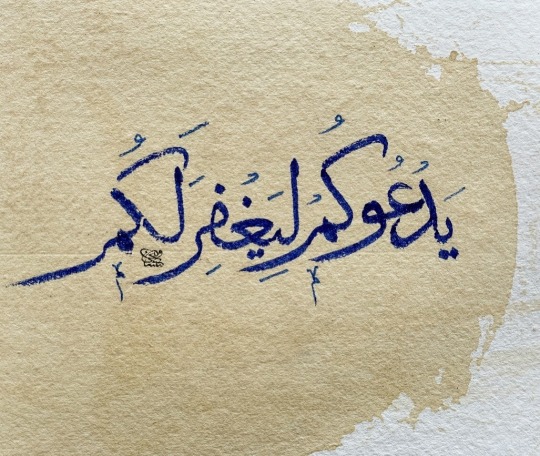 يَدْعُوكُمْ لِيَغْفِرَ لَكُمْ